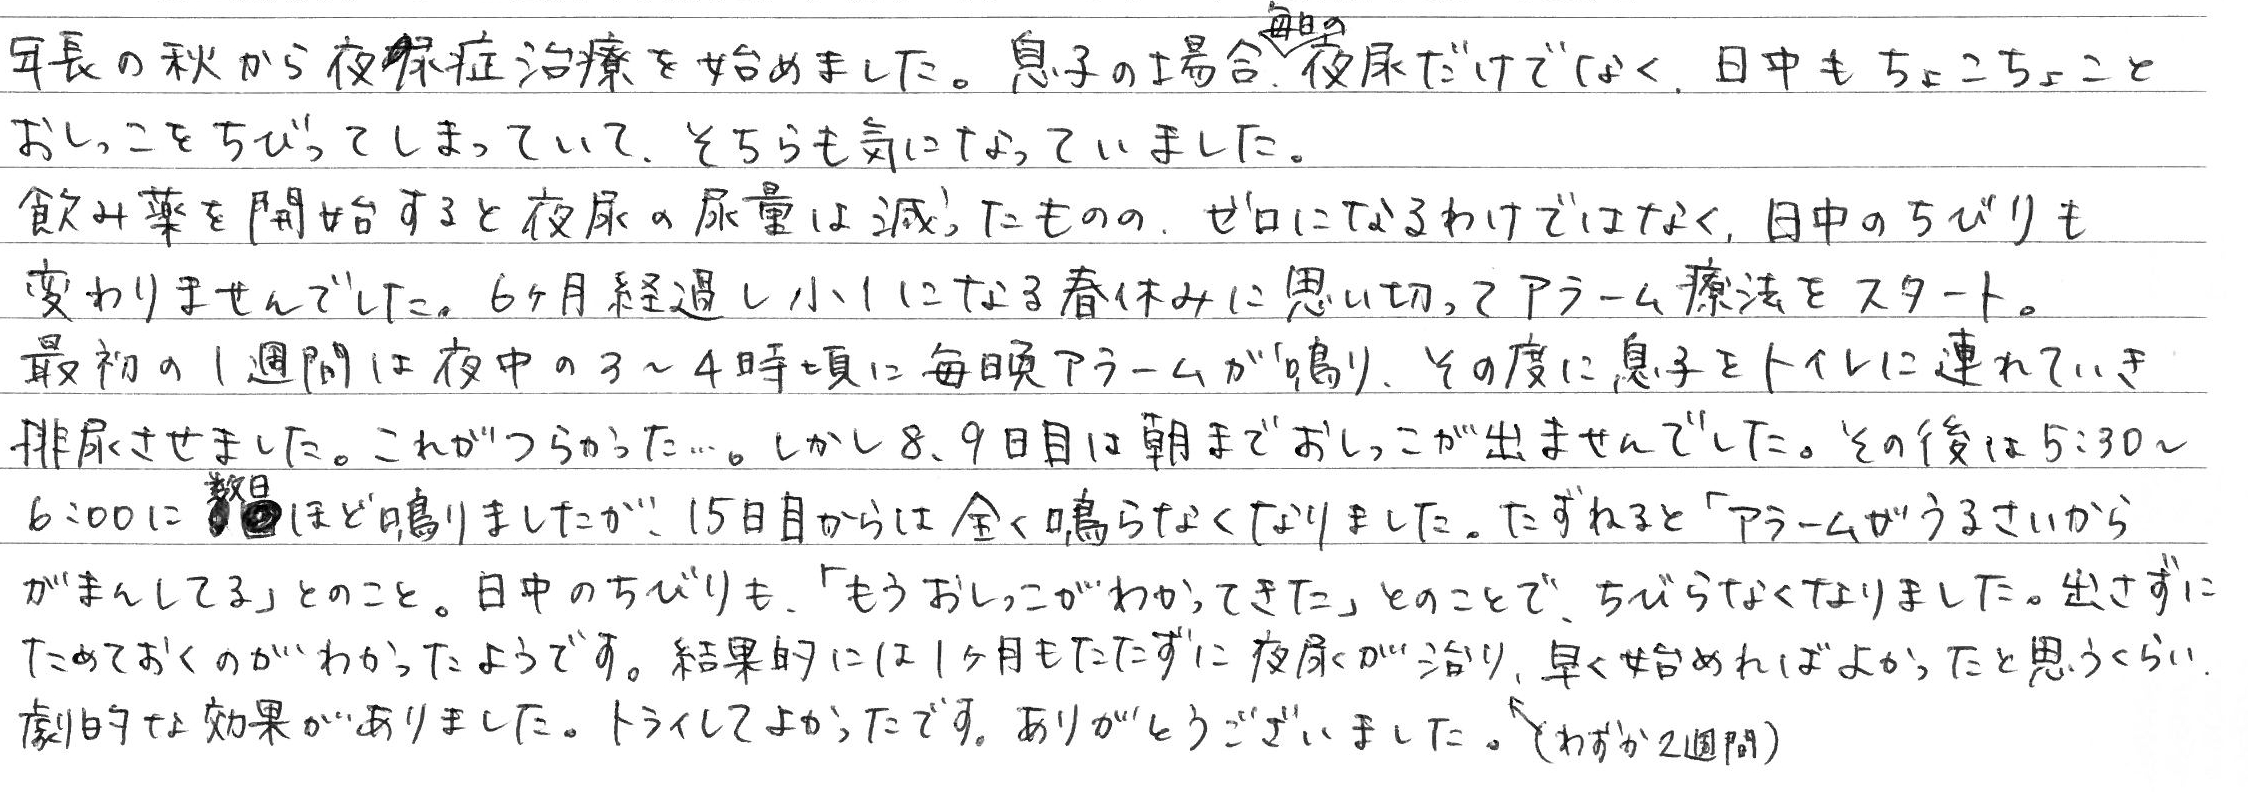 年長の秋から夜尿症治療を始めました。息子の場合、毎日の夜尿だけでなく、日中もちょこちょこと
おしっこをちびってしまっていて、そちらも気になっていました。
飲み薬を開始すると夜尿の尿量は減ったものの、ゼロになるわけではなく、日中のちびりも
変わりませんでした。6ヶ月経過し小1になる春休みに思い切ってアラーム療法をスタート。
最初の1週間は夜中の3～4時頃に毎晩アラームが鳴り、その度に息子をトイレに連れていき
排尿させました。これがつらかった…。しかし8、9日目は朝までおしっこが出ませんでした。その後は5:30～
6:00に数日ほど鳴りましたが、15日目からは全く鳴らなくなりました。たずねると「アラームがうるさいから
がまんしてる」とのこと。日中のちびりも、「もうおしっこがわかってきた」とのことで、ちびらなくなりました。出さずに
ためておくのがわかったようです。結果的には1ヶ月もたたずに夜尿が治り、早く始めればよかったと思うくらい、
劇的な効果がありました。トライしてよかったです。ありがとうございました。(わずか2週間)